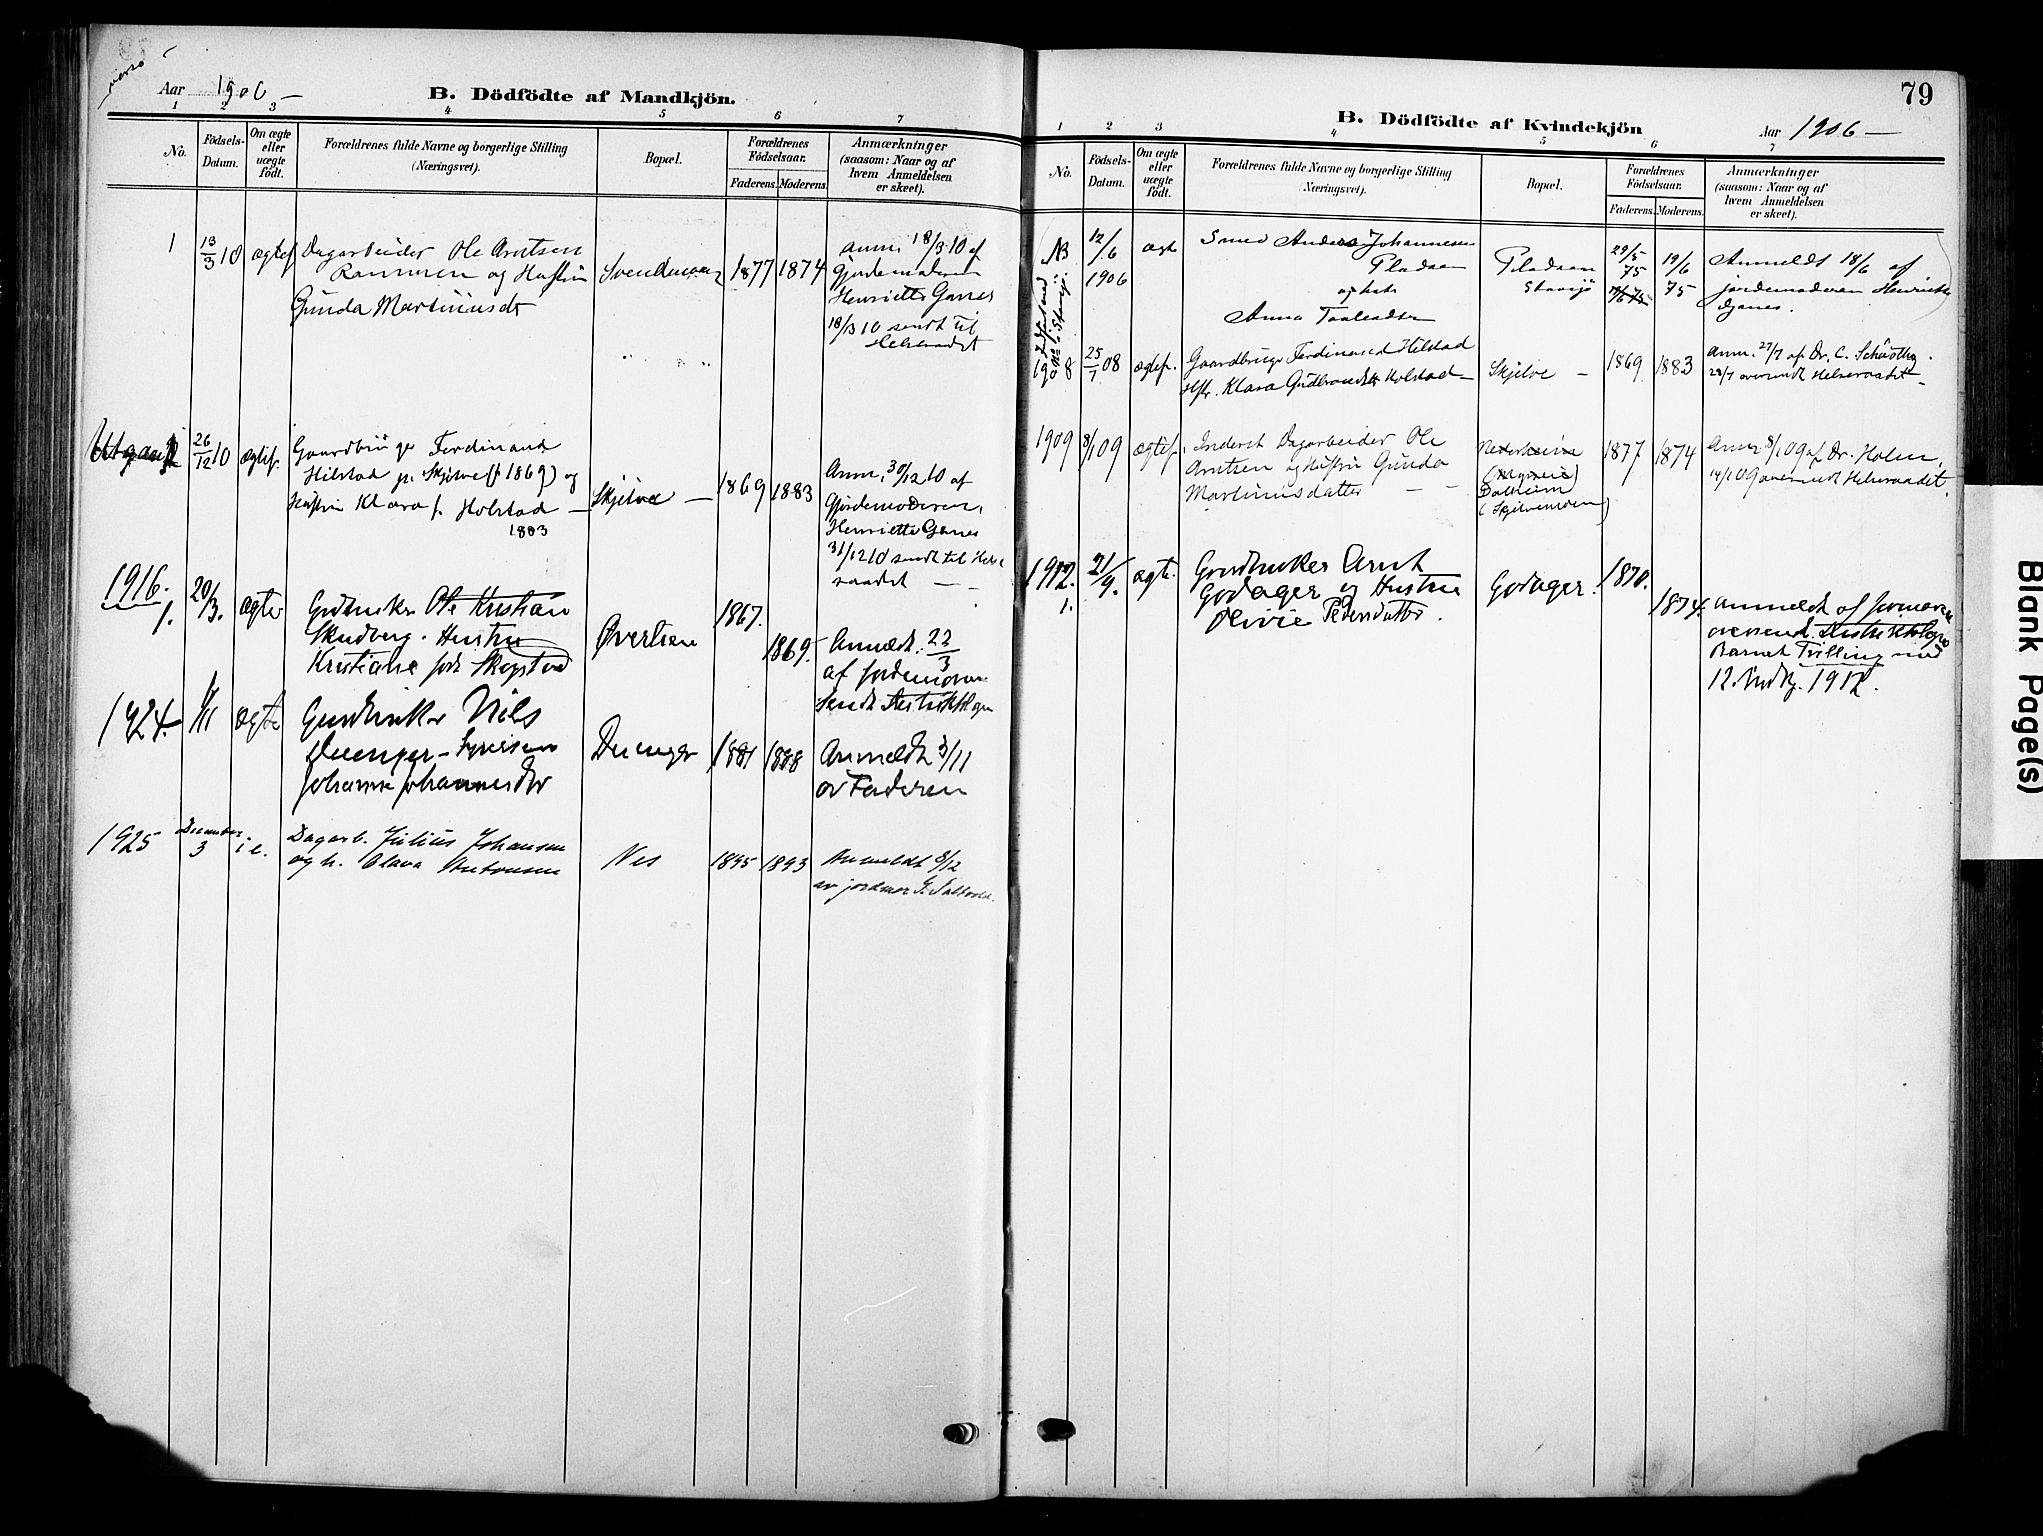 Aar 1906 —
B. Dödfödte af Mandkjön.
1 2 3 4 5 6 7
No.
Födsels-
Datum.
Om ægte
eller
uægte
födt.
Forældrenes fulde Navne og borgerlige Stilling
(Næringsvei).
Bopæl.
Forældrenes
Födselsaar.
Faderens. Moderens.
Anmærkninger
(saasom: Naar og af
hvem Anmeldelsen
er skeet).
1
13/3 10
ægtef
Dagarbeider Ole Arntsen
og Hustru
Gunda Martinusdt
1877
1874
anm. 18/3 10 af
Gjordemoderen
Henriette Ganes
18/3 10 sendt til
Helseraadet
26/12 10
ægtef.
Gaardbruger Ferdinand
Hilstad p. Skjelve (f 1869) og
Hustru Klara f. Holstad —
1883
Skjelve —
1869
1883
Anm. 30/12 10 af
Gjordemoderen,
Henriette Ganes
31/12 10 sendt til Helse
raadet —
1916.
1.
20/3.
ægte
Grdbruker Ole Kristian
Skudberg. Hustru
Kristiane født Skogstad
1867.
1869.
Anmeldt. 22/3
af jordemoren
Sendt
1924.
ægte
Gardbruker Nils
Johanne Johannesdtr
1881
1888
Anmeldt 3/11
av Faderen
1925
December
3
Dagarb. Julius Johansen
og h. Olava Antonsen
Nes
1895
1893
Anmeldt 8/12
av jordmor G.
79
B. Dödfödte af Kvindekjön
Aar 1906 —
1 2 3 4 5 6 7
No.
Födsels-
Datum.
Om ægte
eller
uægte
födt.
Forældrenes fulde Navne og borgerlige Stilling
(Næringsvei).
Bopæl.
Forældrenes
Födselsaar.
Faderens. Moderens.
Anmærkninger
(saasom: Naar og af
hvem Anmeldelsen
er skeet).
NB
12/6
1906
ægte
Smed Anders Johannesen
Pladsen
og
Anna
Pladsen
Stavsjø
29/5
75
19/6
75
Anmeldt 18/6 af
jordemoderen Henriette
Ganes.
1908
25/7 08
ægtef.
Gaardbruger Ferdinand Hilstad
Hstr. Klara Gudbrandsd. Holstad —
Skjelve —
1869
1883
Anm. 27/7 af Dr. C.
28/7 oversendt Helseraadet —
1909
8/1 09
ægtef.
Inderst Dagarbeider Ole
Arntsen og Hustru Gunda
Martinusdatter — —
Dalheim
(Skjelvemoen)
1877
1874
Anm. 8/1 09 af Dr. Holm,
14/1 09 oversendt Helseraadet.
1912.
1.
21/9.
ægte.
Gardbruker Arnt
Godager og Hustru
Olivie Pedersdatter.
Godager.
1870.
1874.
Anmeldt af jormoren
oversendt
Barnet Tvilling med
12. Mdkj. 1912.
Blank Page(s)